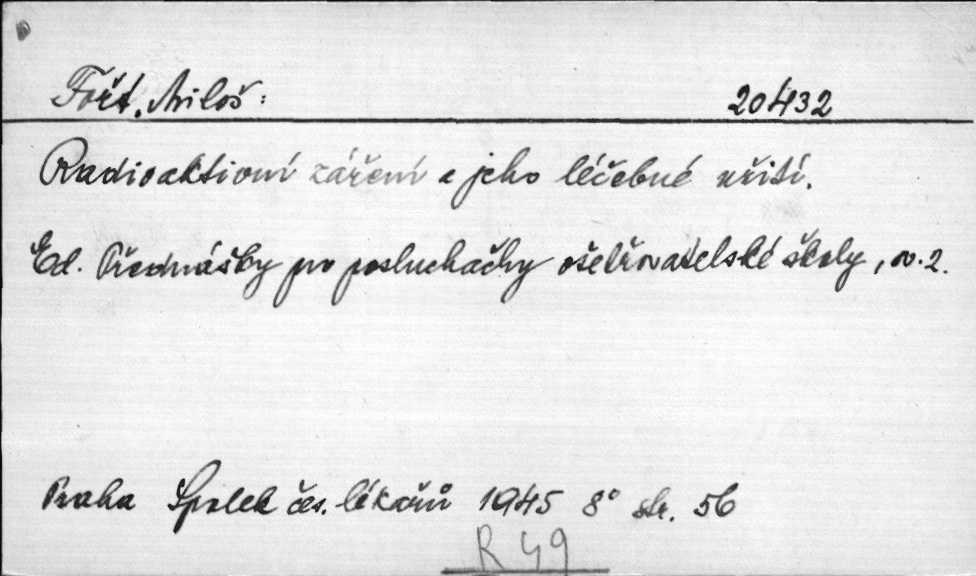 Fořt, Miloš: 20432
Radioaktivní záření a jeho léčebné užití.
Ed. Přednášky pro posluchačky ošetřovatelské školy, sv. 2.
Praha Spolek čes. lékařů 1945 8° str. 56
R 49